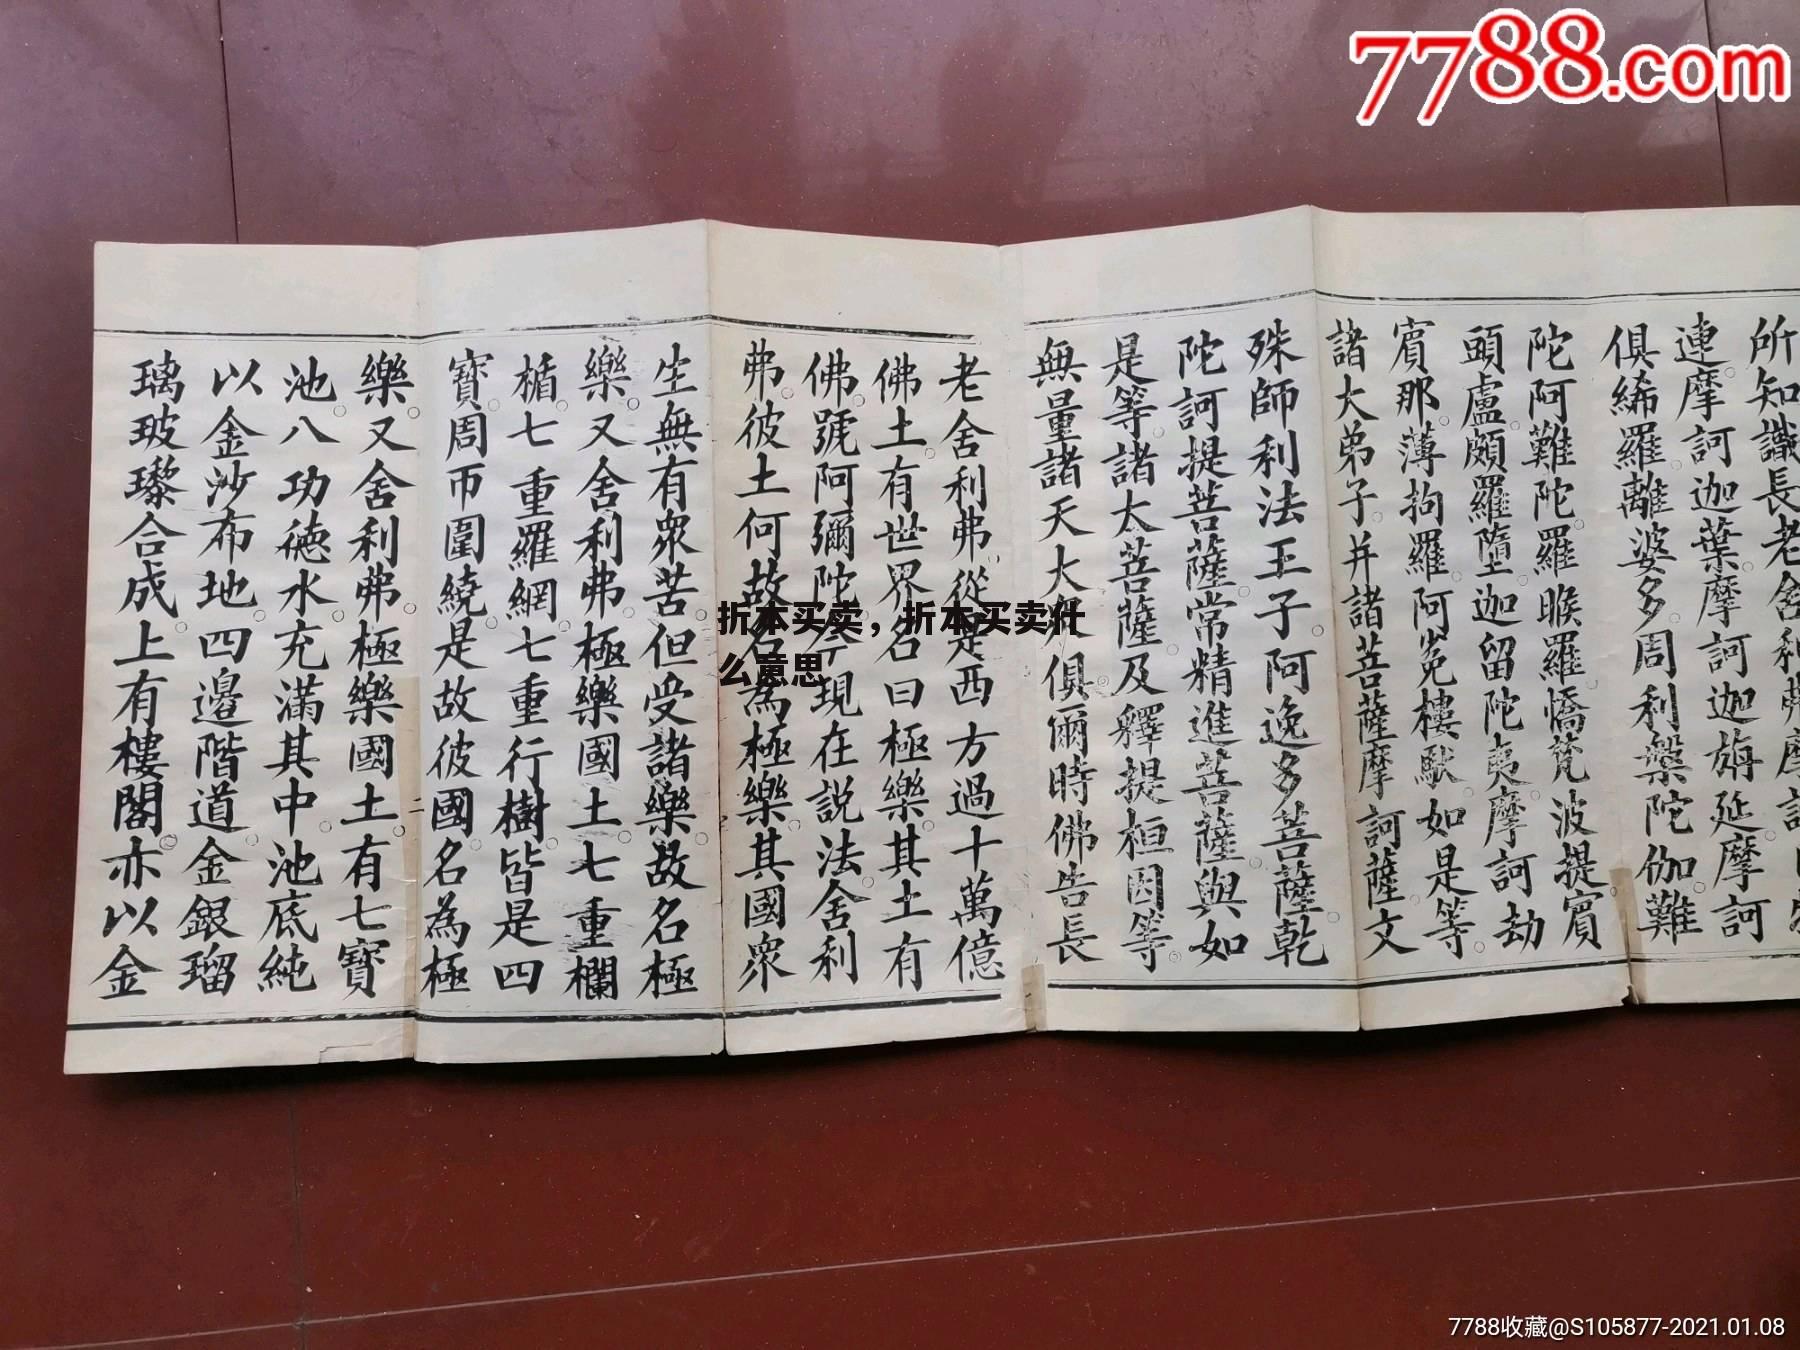 7788.com
所知識長老舍利弗摩訶
連摩訶迦葉摩訶迦旃延摩訶
俱絺羅離婆多周利槃陀伽難
陀阿難陀羅睺羅憍梵波提賓
頭盧頗羅墮迦留陀夷摩訶劫
賓那薄拘羅阿㝹樓馱如是等
諸大弟子并諸菩薩摩訶薩文
殊師利法王子阿逸多菩薩乾
陀訶提菩薩常精進菩薩與如
是等諸大菩薩及釋提桓因等
無量諸天大眾俱爾時佛告長
老舍利弗從是西方過十萬億
佛土有世界名曰極樂其土有
佛號阿彌陀今現在説法舍利
弗彼土何故名為極樂其國眾
生無有眾苦但受諸樂故名極
樂又舍利弗極樂國土七重欄
楯七重羅網七重行樹皆是四
寶周帀圍繞是故彼國名為極
樂又舍利弗極樂國土有七寶
池八功德水充滿其中池底純
以金沙布地四邊階道金銀瑠
璃玻瓈合成上有樓閣亦以金
二
折本买卖，折本买卖什
么意思
7788收藏@S105877-2021.01.08